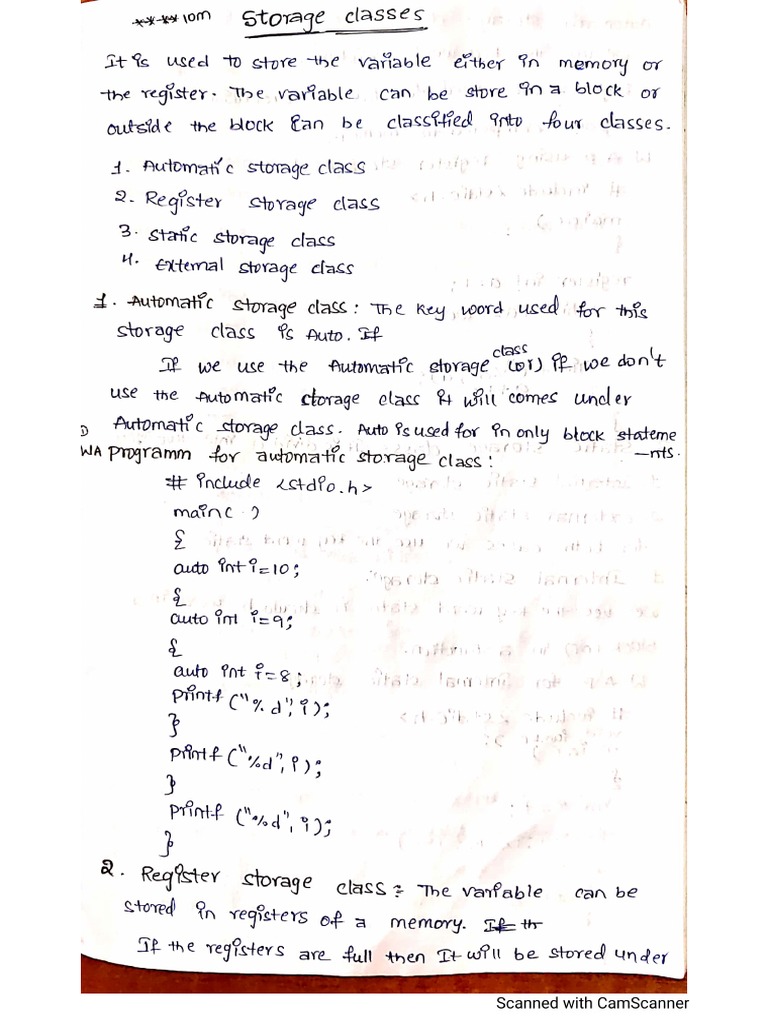 ****10m Storage classes
It is used to store the variable either in memory or
the register. The variable can be store in a block or
outside the block can be classified into four classes.
1. Automatic storage class
2. Register storage class
3. Static storage class
4. External storage class
1. Automatic storage class: The key word used for this
storage class is Auto. If
If we use the Automatic storage class (or) if we don't
use the Automatic storage class it will comes under
Automatic storage class. Auto is used for in only block stateme
-nts.
1) WA programm for automatic storage class:
# include <stdio.h>
main( )
{
auto int i=10;
{
auto int i=9;
{
auto int i=8;
printf ("%d", i);
}
printf ("%d", i);
}
printf ("%d", i);
}
2. Register storage class: The variable can be
stored in registers of a memory. If th
If the registers are full then It will be stored under
Scanned with CamScanner